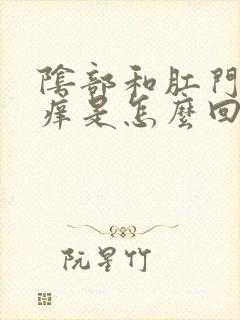 陰部和肛門
痒是怎麼回
阮星竹